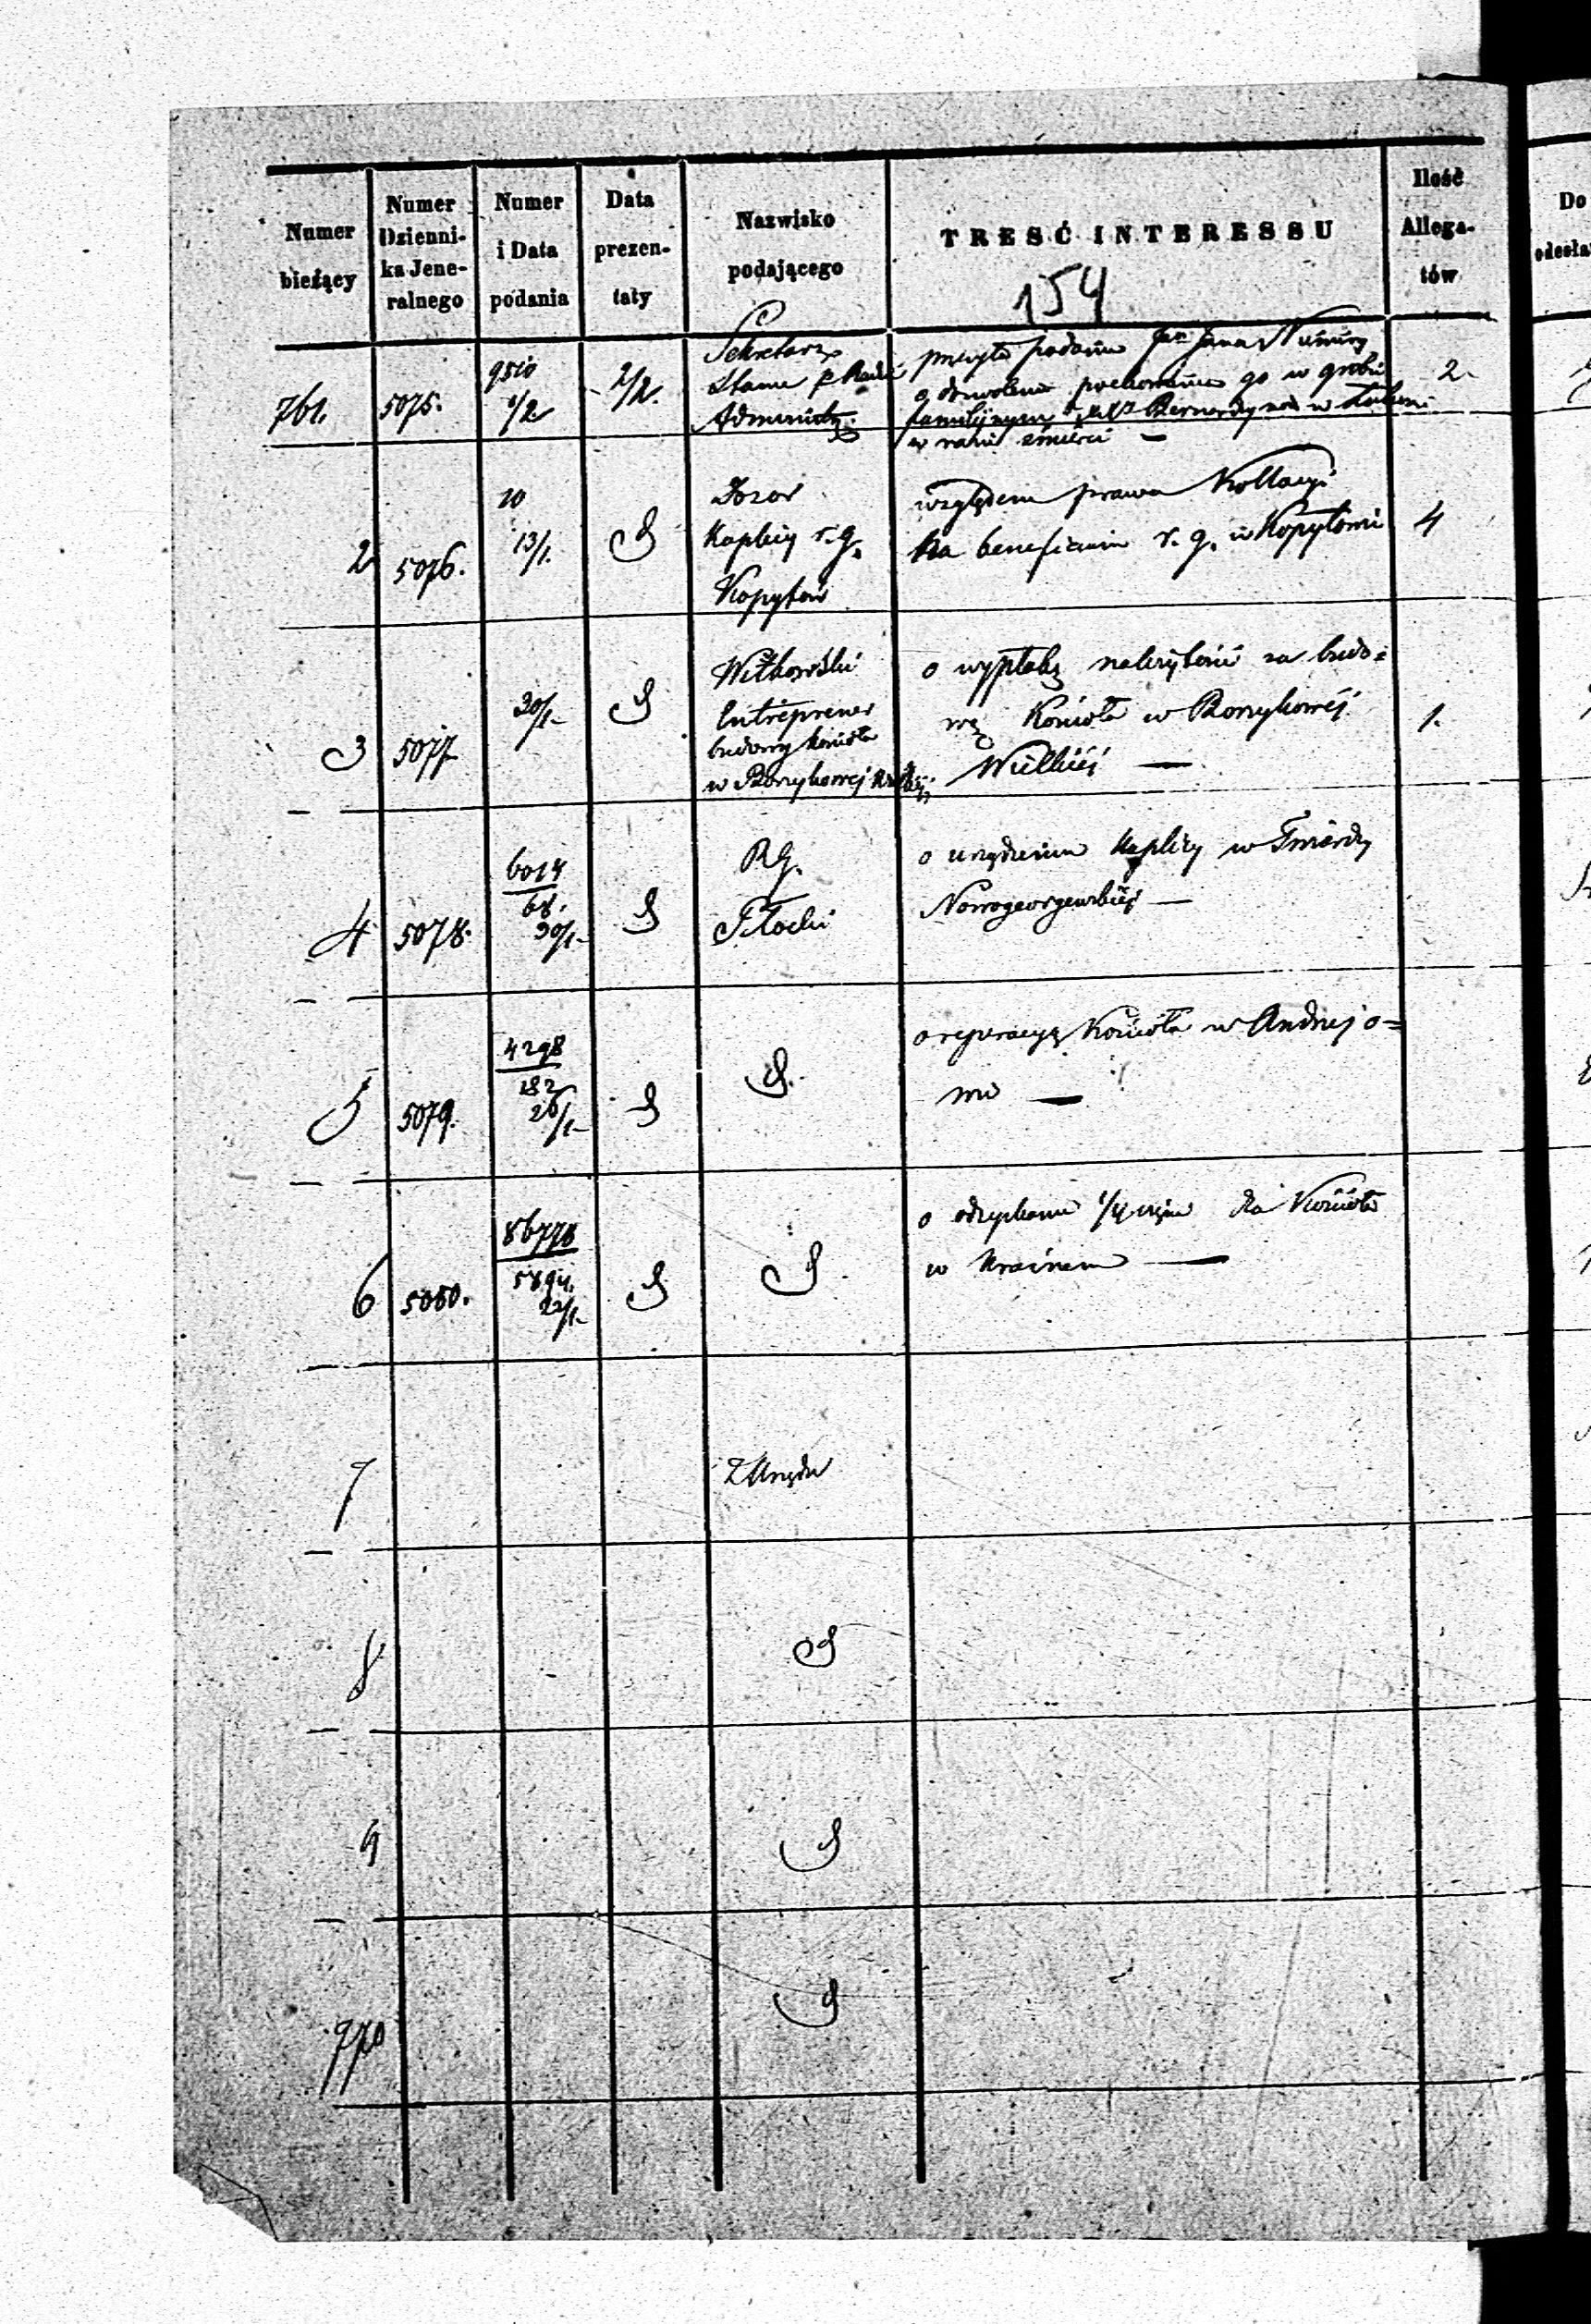 Numer
bieżący
Numer
Dzienni-
ka Jene-
ralnego
Numer
i Data
podania
Data
prezen-
taty
Nazwisko
podającego
TRESĆ INTERESSU
Ilość
Allega-
tów
Do
154
761.
5075.
9510
1/2
2/2.
Sekretarz
Stanu p Radzie
Administr.
przesyła podanie Jana
o dozwolenie pochowania go w grobie
familijnym Bernardynów w
w razie śmierci —
2.
2
5076.
10
13/1.
Dozor
Kaplicy r. g.
Kopytów
względem prawa Kollacyi
na beneficium r. g. w Kopytowie
4
3
5077
30/1
Witkowski
Entreprener
budowy kościoła
w
o wypłatę należytości za budo=
wę Kościoła w
Wielkiéj —
1.
4
5078.
6014
68.
30/1
RG.
Płocki
o urządzenie Kaplicy w Twierdzy
Nowogeorgewskiéj —
5
5079.
4298
182
26/1
o reperacyą Kościoła w Andrzejo=
wie —
6
5080.
86778
5894.
22/1
o odzyskanie dla Kościoła
w —
7
Z Urzędu
8
9
770